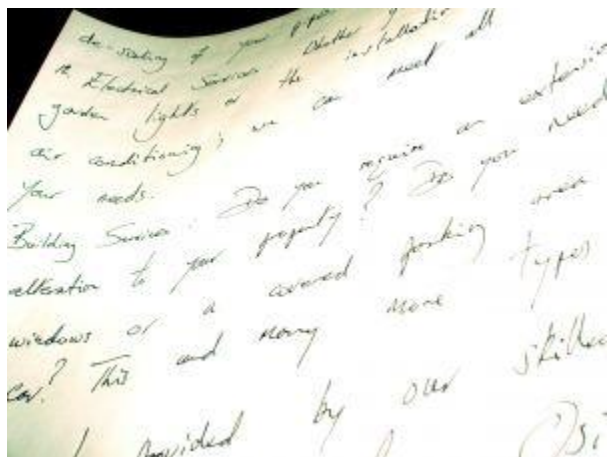 de-scaling of your pipes
Electrical Services Whether
garden lights or the installation
air conditioning, we can meet all
your needs.
Building Services: Do you require an extensive
alteration to your property? Do you need
windows or a covered parking area
car? This and many more types
provided by our skilled